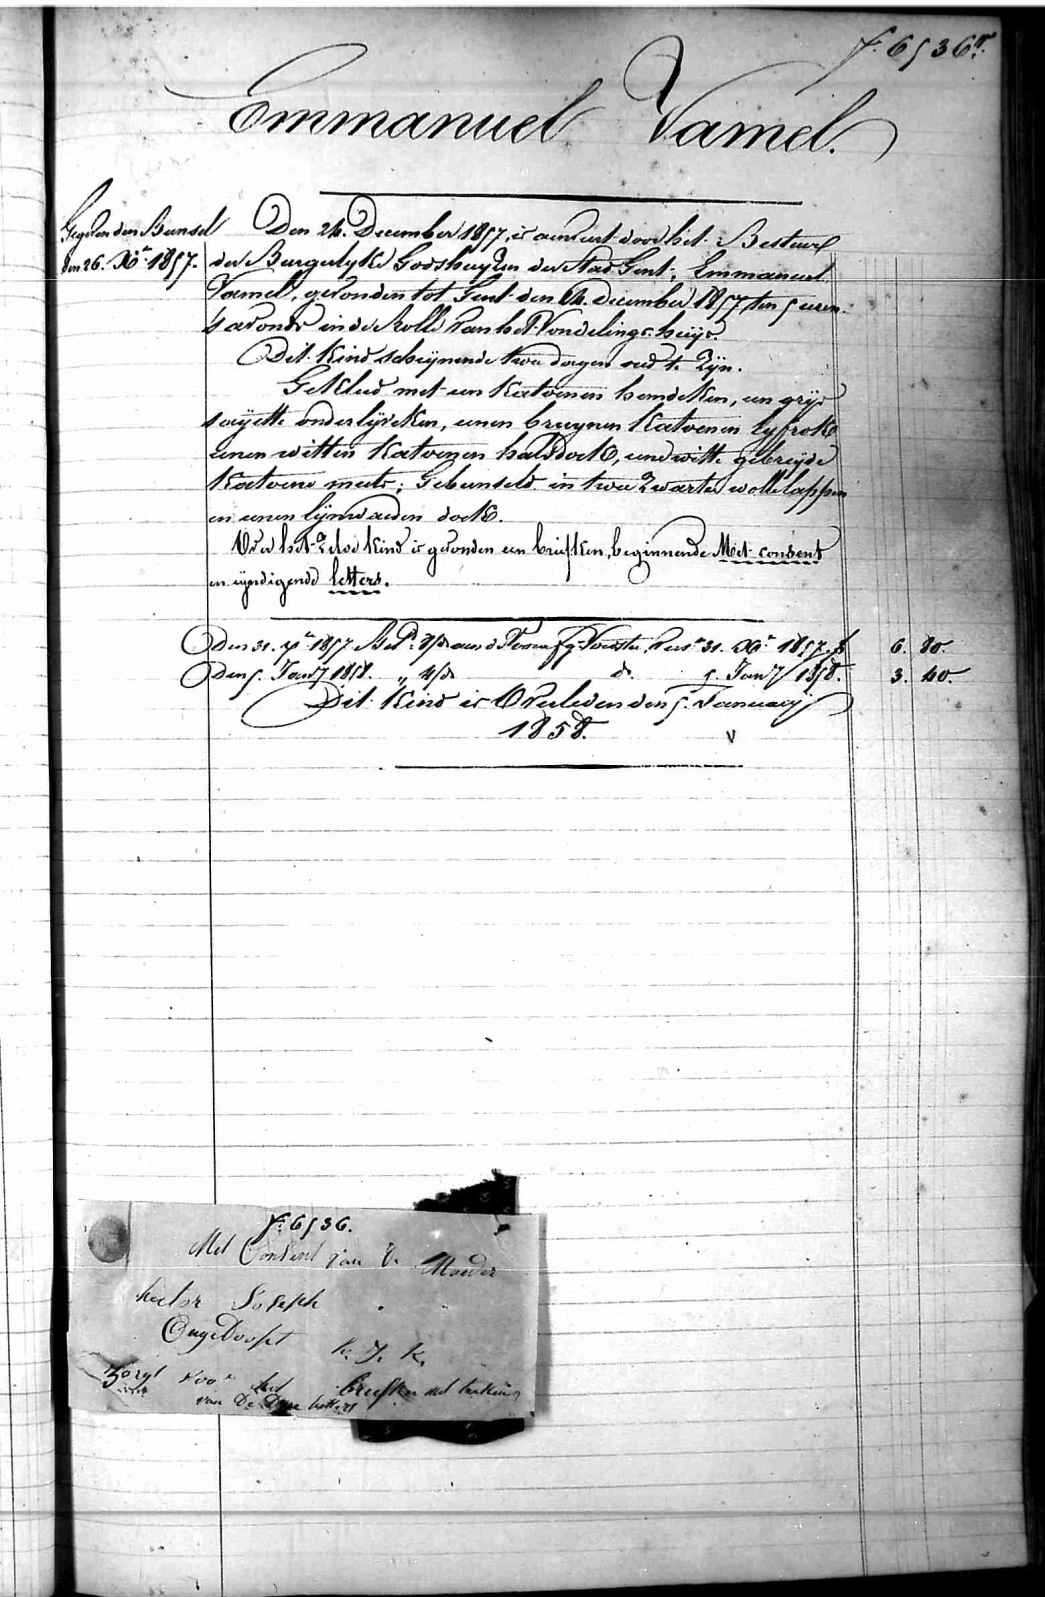 f. 6536.
Emmanuel Vamel.
Gegeven den Bunsel
den 26. Xb 1857.
Den 24. December 1857, is aenveert door het Bestuer
der Burgerlyke Godshuyzen der Stad Gent, Emmanuel
Vamel, gevonden tot Gent den 24. december 1857, ten 5 uren
's avonds in de Rolle van het Vondelings-huys.
Dit Kind schynende twee dagen oud te zyn.
Gekleed met een katoenen hemdeken, een grys
sayette onderlyveken, eenen bruynen katoenen lyfrok
eenen witten katoenen halsdoek, eene witte gebreyde
katoene muts; Gebunseld in twee zwarte wolle lappen
en eenen lynwaeden doek.
Over het zelve kind is gevonden een briefken, beginnende Met consent
en eyndigende letters.
Den 31. Xb 1857. 31. Xb 1857. f 6. 80.
Den 5. Jany 1858. " d. 5. Jany 1858. 3. 40.
Dit Kind is Overleden den 5. January
1858.
f. 6536.
Met Consent van de Moeder
hector Joseph
OngeDoopt k. J. k.
Zorgt voor het briefken met teeken
van De Drye letters